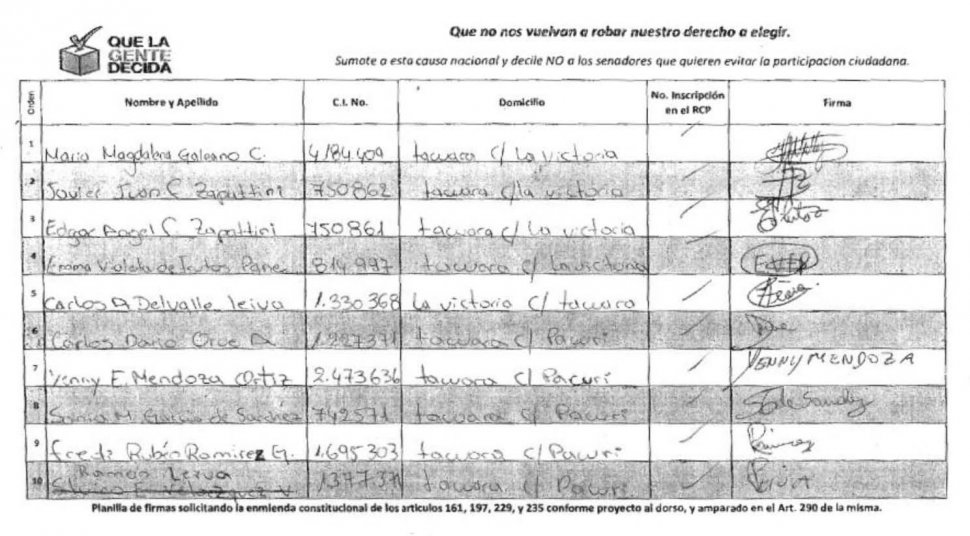 QUE LA
GENTE
DECIDA
Que no nos vuelvan a robar nuestro derecho a elegir.
Sumate a esta causa nacional y decile NO a los senadores que quieren evitar la participacion ciudadana.
Orden Nombre y Apellido C.I. No. Domicilio No. Inscripción en el RCP Firma
1 Maria Magdalena Galeano C. 4184409 tacuara c/ La victoria
2 Javier Juan C Zapattini 750862 tacuara c/la victoria
3 Edgar Angel C. Zapattini 750861 tacuara c/ La victoria
4 Emma Violeta de 814997 tacuara c/ La victoria
5 Carlos A Delvalle leiva 1.330368 La victoria c/ tacuara
6 Carlos Dario Orue A 1227371 tacuara c/ Pacuri
7 Yenny E. Mendoza Ortiz 2.473636 tacuara c/ Pacuri YENNY MENDOZA
8 Sonia M. Garcia de Sanchez 742571 tacuara c/ Pacuri
9 Fredy Rubén Ramirez G. 1.695303 tacuara c/ Pacuri
10 Ramon Leiva 137737 tacuara c/ Pacuri
Planilla de firmas solicitando la enmienda constitucional de los articulos 161, 197, 229, y 235 conforme proyecto al dorso, y amparado en el Art. 290 de la misma.